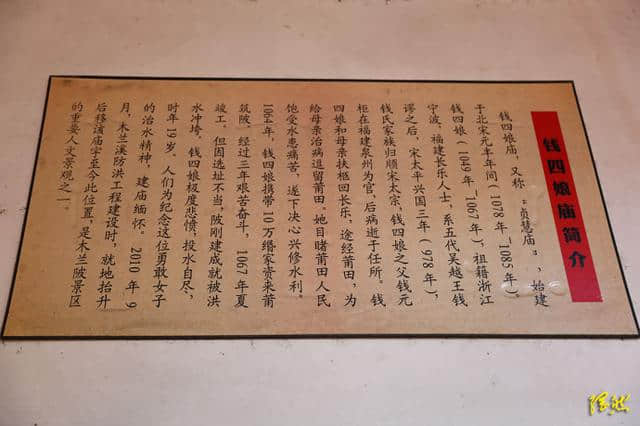 钱四娘庙简介
钱四娘庙，又称“贞慧庙”，始建
于北宋元丰年间（1078年-1085年），
钱四娘（1049年-1067年），祖籍浙江
宁波，福建长乐人士，系五代吴越王钱
谬之后，宋太平兴国三年（978年），
钱氏家族归顺宋太宗，钱四娘之父钱元
柜在福建泉州为官，后病逝于任所。钱
四娘和母亲扶柩回长乐，途经莆田，为
给母亲治病逗留莆田。她目睹莆田人民
饱受水患痛苦，遂下决心兴修水利。
1064年，钱四娘携带10万缗家资来莆
筑陂，经过三年艰苦奋斗，1067年夏
竣工，但因选址不当，陂刚建成就被洪
水冲垮，钱四娘极度悲愤，投水自尽，
时年19岁。人们为纪念这位勇敢女子
的治水精神，建庙缅怀。2010年9
月，木兰溪防洪工程建设时，就地抬升
后移该庙宇至今此位置，是木兰陂景区
的重要人文景观之一。